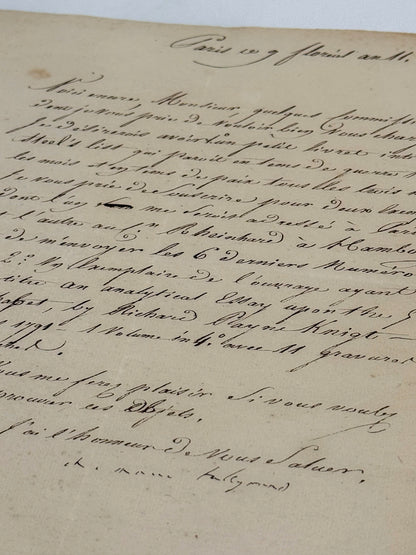 Paris ce 9 floréal an 11.
Voici encore, Monsieur quelques Commissi
dont je vous prie de vouloir bien vous char
Je désirerois avoir un petit livret inti
Steel's list qui paroit en tems de guerre t
les mois et en tems de paix tous les trois
Je vous prie de souscrire pour deux
dont l'un me seroit adressé à Paris
et l'autre au Cn Rheinhard à Hambo
de m'envoyer les 6 derniers Numér
2.º Un Exemplaire de l'ouvrage ayant
titre an analytical Essay upon the G
phabet, by Richard Payne Knigt
1791. 1 Volume in 4º avec 11 gravures
Vous me ferez plaisir si vous voulez
procurer ces objets.
J'ai l'honneur de Vous Saluer.
ch. mau. talleyrand